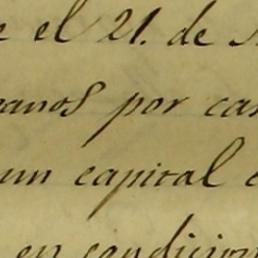 e el 21. de
anos por ca
un capital
en condicion